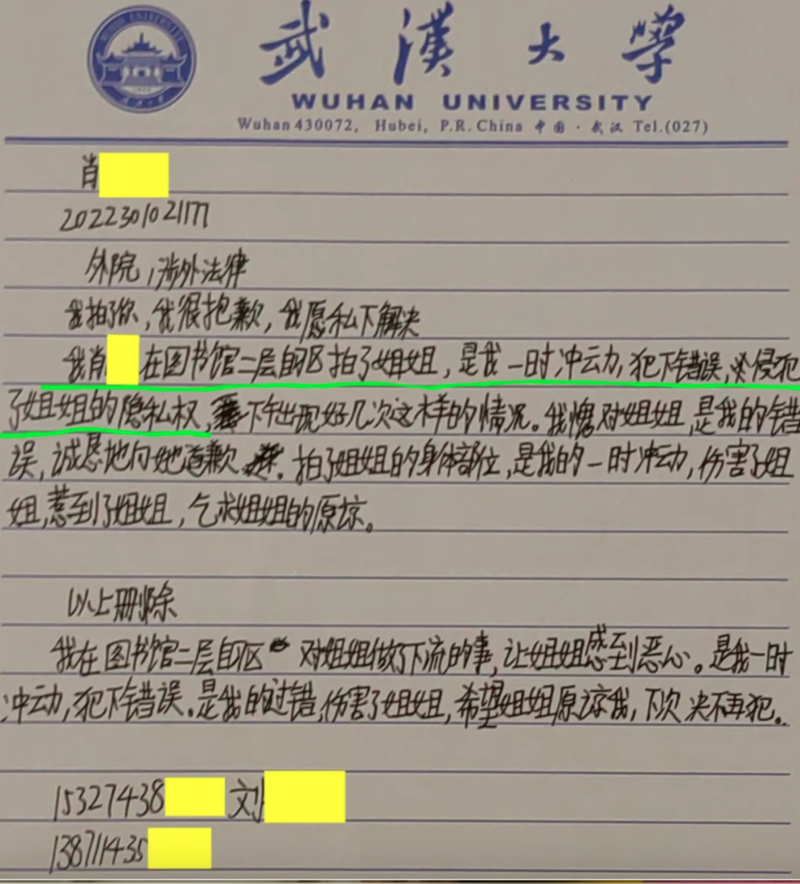 武漢大學
WUHAN UNIVERSITY
Wuhan 430072, Hubei, P.R.China 中国·武汉 Tel.(027)
肖
2022301021177
外院,涉外法律
我拍了你,我很抱歉,我愿私下解决
我肖 在图书馆二层自习区拍了姐姐,是我一时冲动,犯下错误,侵犯
了姐姐的隐私权,下午出现好几次这样的情况。我愧对姐姐,是我的错
误,诚恳地向她道歉。拍了姐姐的身体部位,是我的一时冲动,伤害了姐
姐,惹到了姐姐,乞求姐姐的原谅。
以上删除
我在图书馆二层自习区 对姐姐做了下流的事,让姐姐感到恶心。是我一时
冲动,犯下错误。是我的过错,伤害了姐姐,希望姐姐原谅我,下次决不再犯。
15327438 刘
138711435